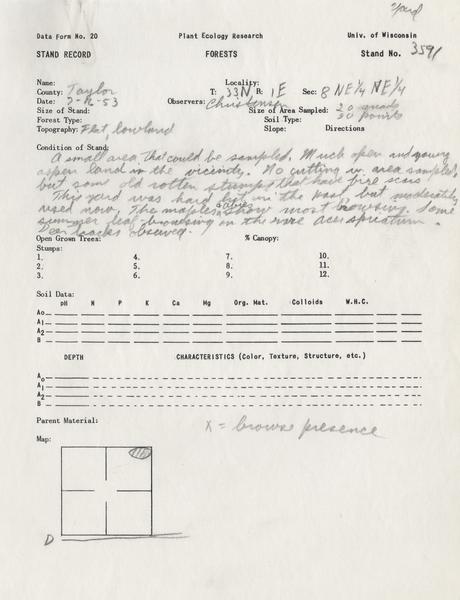 Yard
Data Form No. 20 Plant Ecology Research Univ. of Wisconsin
STAND RECORD FORESTS Stand No. 3591
Name: Locality:
County: Taylor T: 33N R: 1E Sec: 8 NE¼ NE¼
Date: 7-16-53 Observers: Christensen Size of Area Sampled: 20 quads
Size of Stand: 30 points
Forest Type: Soil Type:
Topography: Flat, lowland Slope: Directions
Condition of Stand:
A small area that could be sampled. Much open and young
aspen land in the vicinity. No cutting in area sampled,
but some old rotten stumps that have fire scars
This yard was hard hit in the past but moderately
used now. The maples show most browsing. Some
summer leaf-browsing on the rare Acer spicatum.
Deer tracks observed.
Open Grown Trees: % Canopy:
Stumps:
1. 4. 7. 10.
2. 5. 8. 11.
3. 6. 9. 12.
Soil Data:
pH N P K Ca Mg Org. Mat. Colloids W.H.C.
A₀
A₁
A₂
B
DEPTH CHARACTERISTICS (Color, Texture, Structure, etc.)
A₀
A₁
A₂
B
Parent Material:
X = browse presence
Map:
D